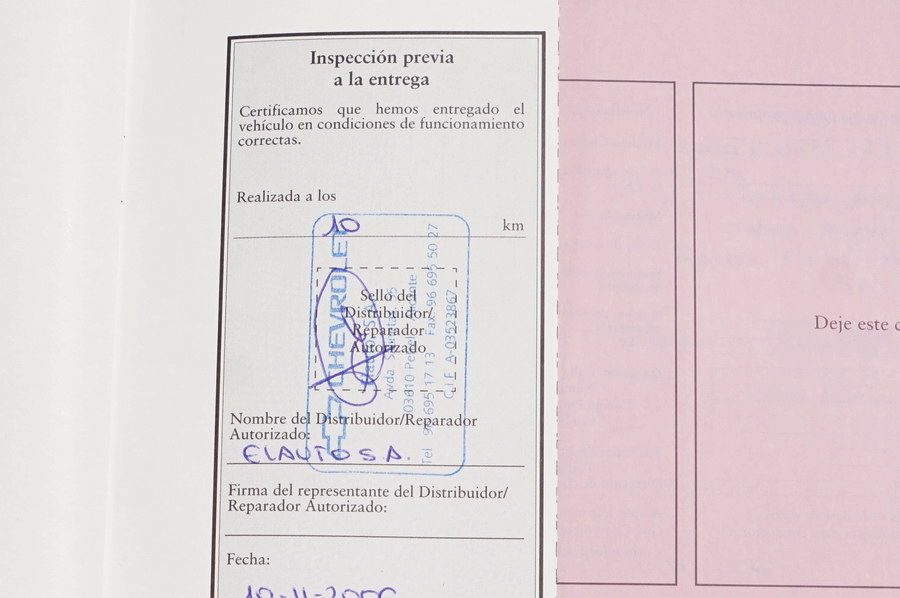 Inspección previa
a la entrega
Certificamos que hemos entregado el
vehículo en condiciones de funcionamiento
correctas.
Realizada a los
10 km
CHEVROLET
Avda
03610
Tel 96 695 17 13 Fax 96 695 50 27
C.I.F. A-03523867
Sello del
Distribuidor/
Reparador
Autorizado
Nombre del Distribuidor/Reparador
Autorizado:
ELAUTO S.A.
Firma del representante del Distribuidor/
Reparador Autorizado:
Fecha:
Deje este